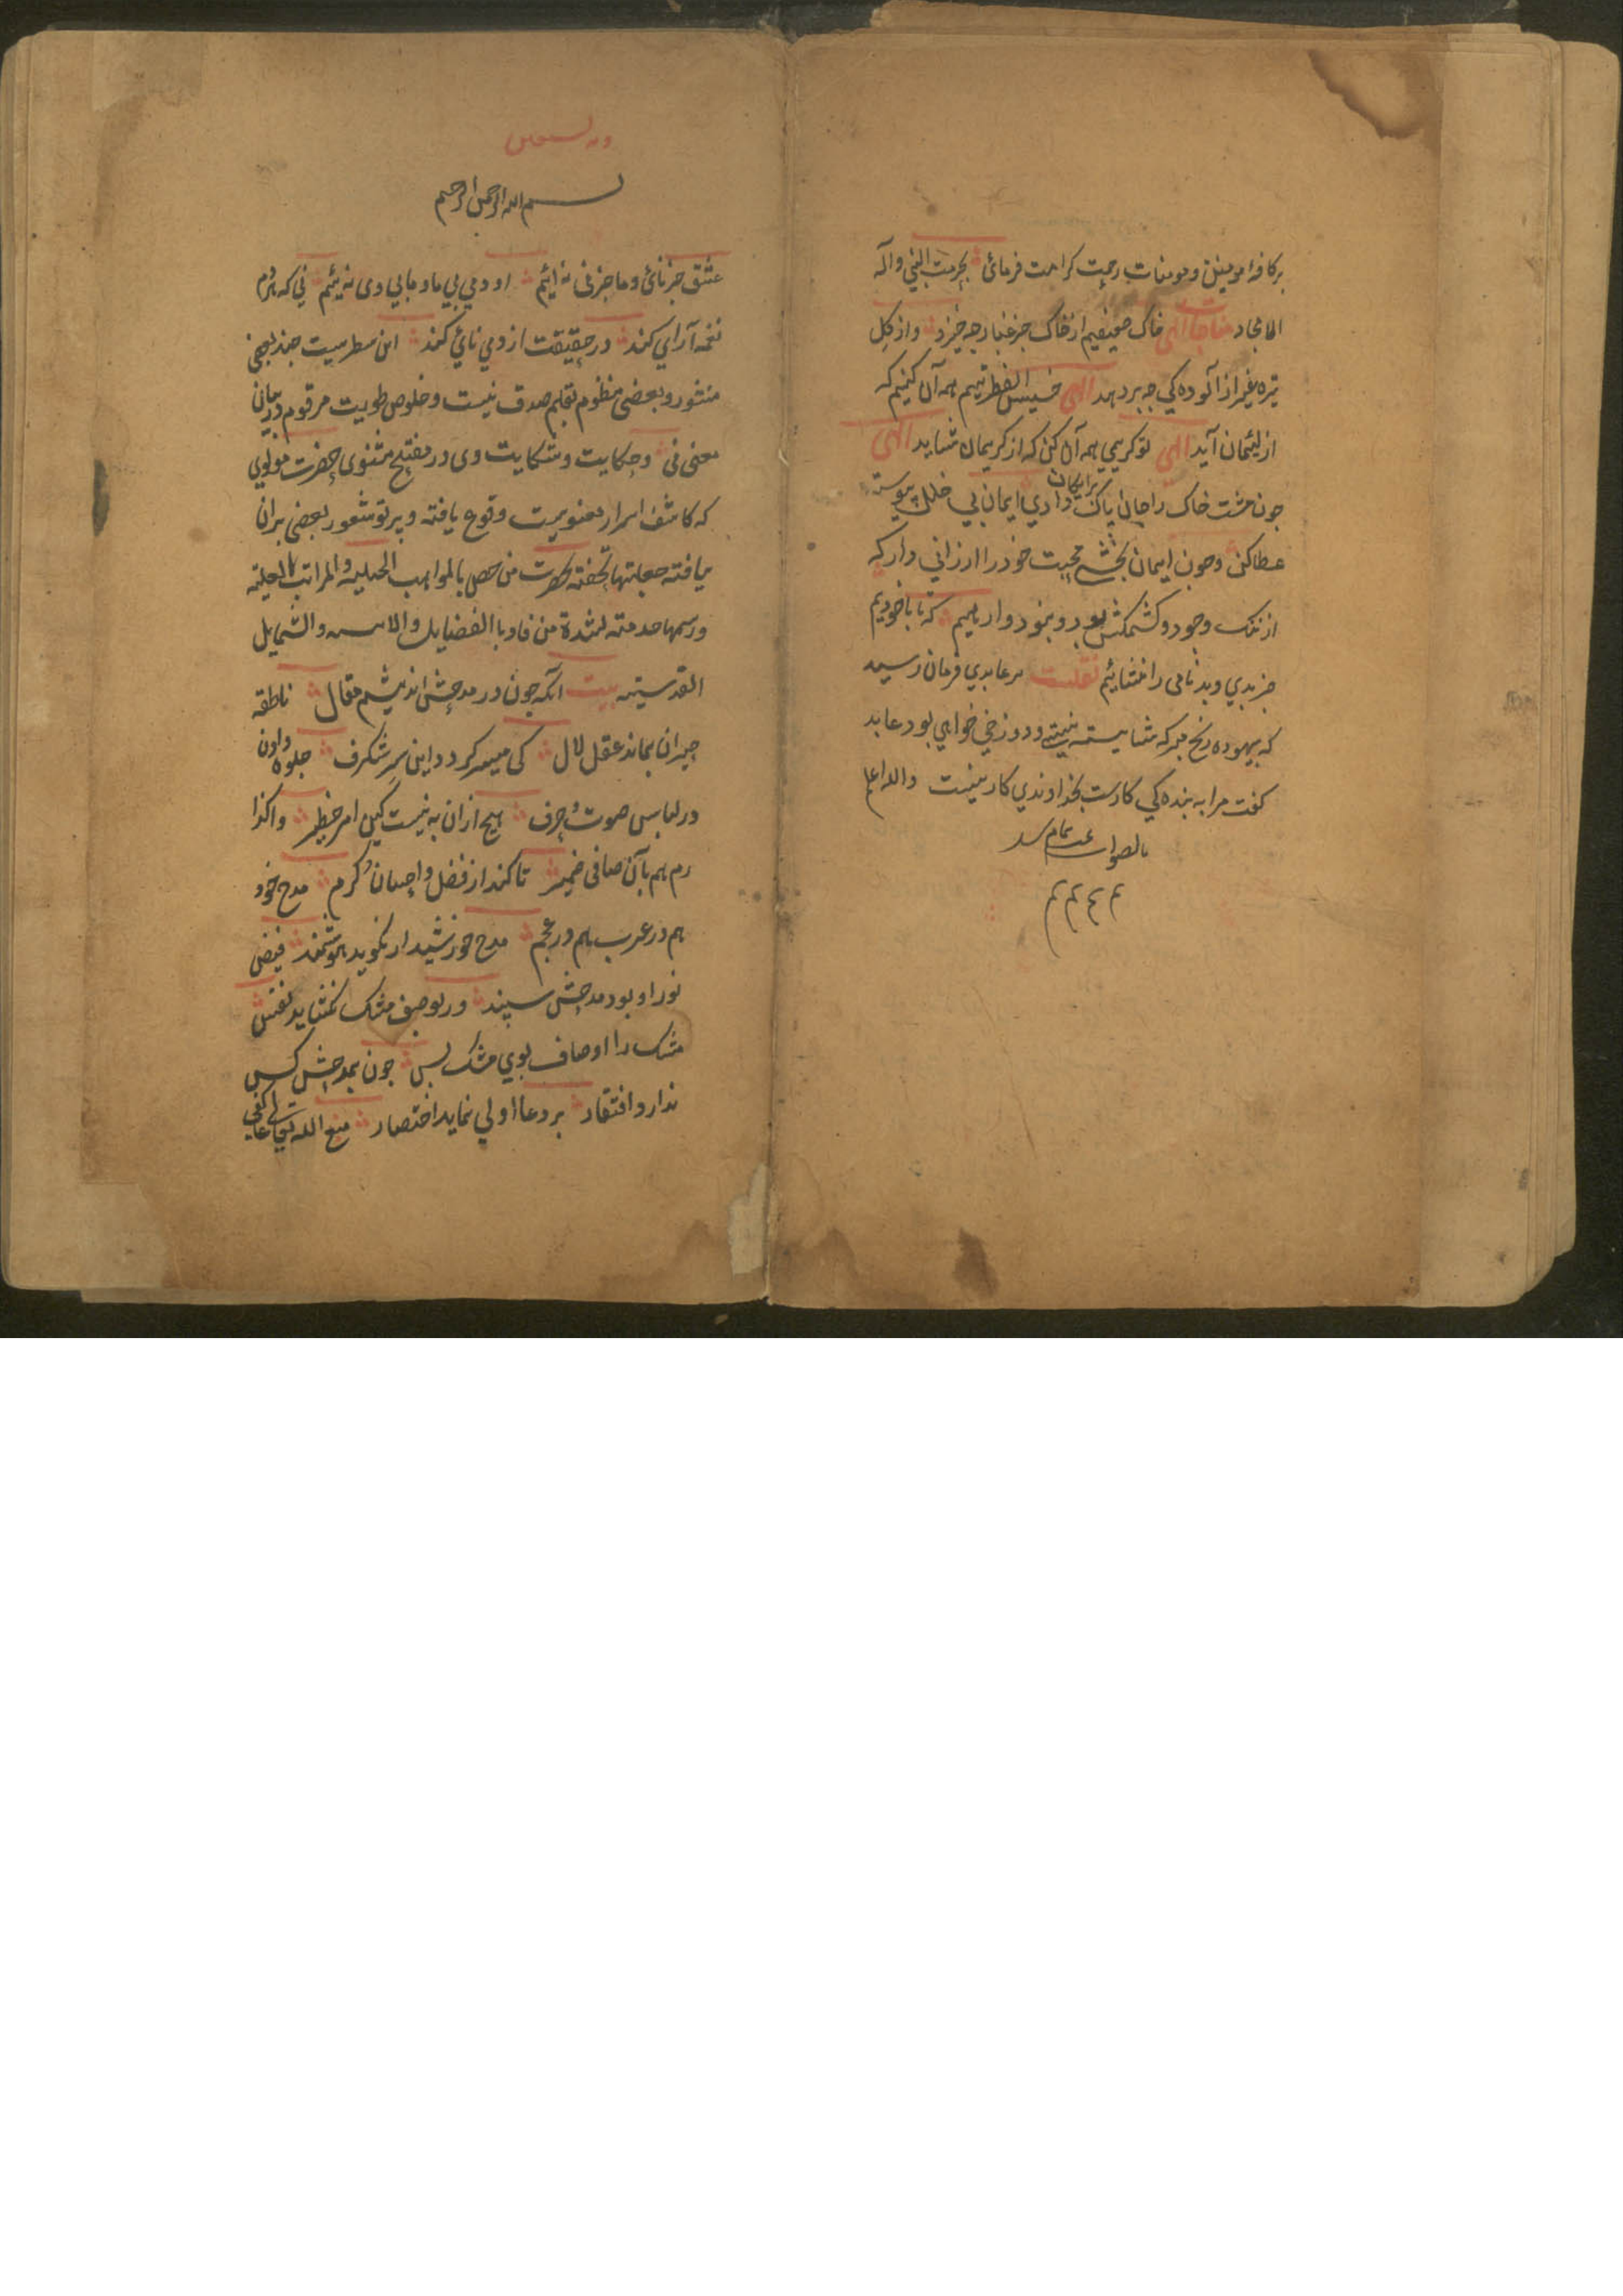 بر کافه مومنین و مومنات رحمت کرامت فرمائی بحرمت النبی وآله
الامجاد مناجات الهی خاک ضعیفیم از خاک جز غبار چه خیزد واز کل
تیره بغیر از آلوده کی چه بر دهد الهی خسیس الفطرتیم همه آن کنیم که
از لئیمان آید الهی تو کریمی همه آن کن که از کریمان شاید الهی
چون مشت خاک را جان پاک برایکان دادی ایمان بی خلل پیوسته
عطا کن وچون ایمان بخشی محبت خود را ارزانی دار که
از ننک وجود و کشمکش بود و نمود وارهیم که تا با خودیم
جز بدی و بدنامی را نشائیم نقلست مر عابدی فرمان رسید
که بیهوده رنج مبر که شایسته نیستی و دوزخی خواهی بود عابد
کفت مرا به بنده کی کارست بخداوندی کار نیست والله اعلم
بالصواب تمام شد
وبه نستعین
بسم الله الرحمن الرحیم
عشق جز نائی وما جز نی نه ایم او دمی بی ما وما بی وی نه یئم نی که هر دم
نغمه آرای کند در حقیقت از دمی نائی کند این سطریست چند بعضی
منثور وبعضی منظوم بقلم صدق نیت وخلوص طویت مرقوم در بیان
معنی نی وحکایت وشکایت وی در مفتح مثنوی حضرت مولوی
که کاشف اسرار معنویست وقوع یافته و پرتو شعور بعضی بران
نیافته جعلتها تحفة لحضرت من خص بالمواهب الجلیه والمراتب العلیة
ورسمها خدمته لسدة من فاز با الفضایل والشمایل
القدسیه بیت آنکه چون در مدحش اندیشم مقال ناطقه
حیران بماند عقل لال کی میسر کردد این سر شکرف جلوه دادن
در لباس صوت و حرف هیچ ازان به نیست کین امر خطیر واکذا
رم هم بآن صافی ضمیر تا کند از فضل واحسان و کرم مدح خود
هم در عرب هم در عجم مدح خورشید ار نکوید هوشمند فیض
نور او بود مدحش پسند ور بوصف مشک نکشاید نفس
مشک را اوصاف بوی مشک بس چون بمدحش کس
ندارد افتقار بر دعا اولی نماید اختصار متع الله تعالی